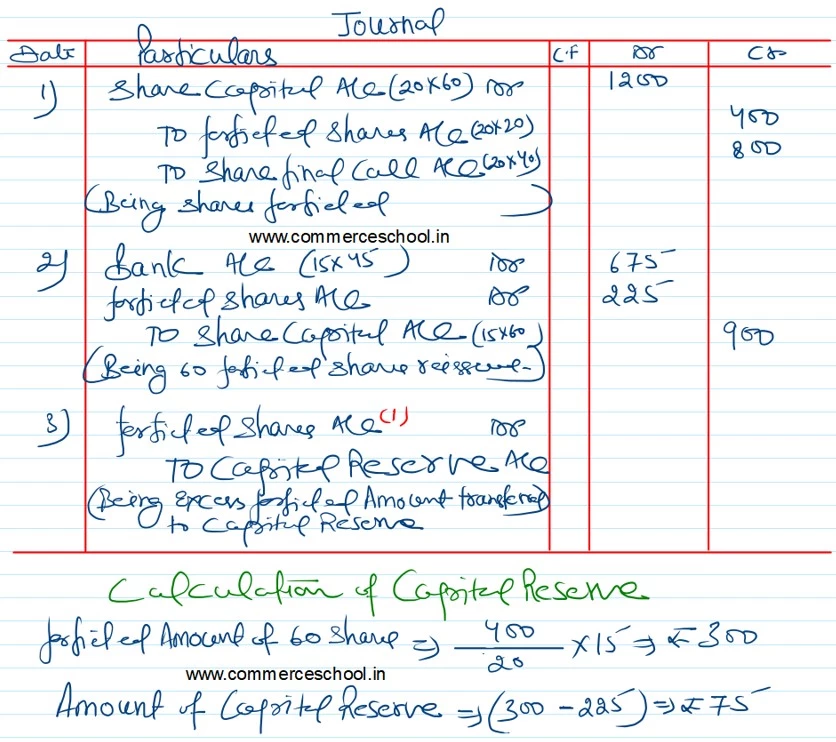 Journal
Date Particulars C.F Dr Cr
1) Share Capital A/c (20×60) Dr 1200
To forfieted Shares A/c (20×20) 400
To Share final Call A/c (20×40) 800
(Being shares forfieted )
www.commerceschool.in
2) Bank A/c (15×45) Dr 675
forfieted shares A/c Dr 225
To Share Capital A/c (15×60) 900
(Being 60 forfieted share reissued)
3) forfieted Shares A/c (1) Dr
To Capital Reserve A/c
(Being Excess forfieted Amount transferred
to Capital Reserve
Calculation of Capital Reserve
forfieted Amount of 60 Share ⇒ 400/20 × 15 ⇒ ₹ 300
www.commerceschool.in
Amount of Capital Reserve ⇒ (300 - 225) ⇒ ₹ 75